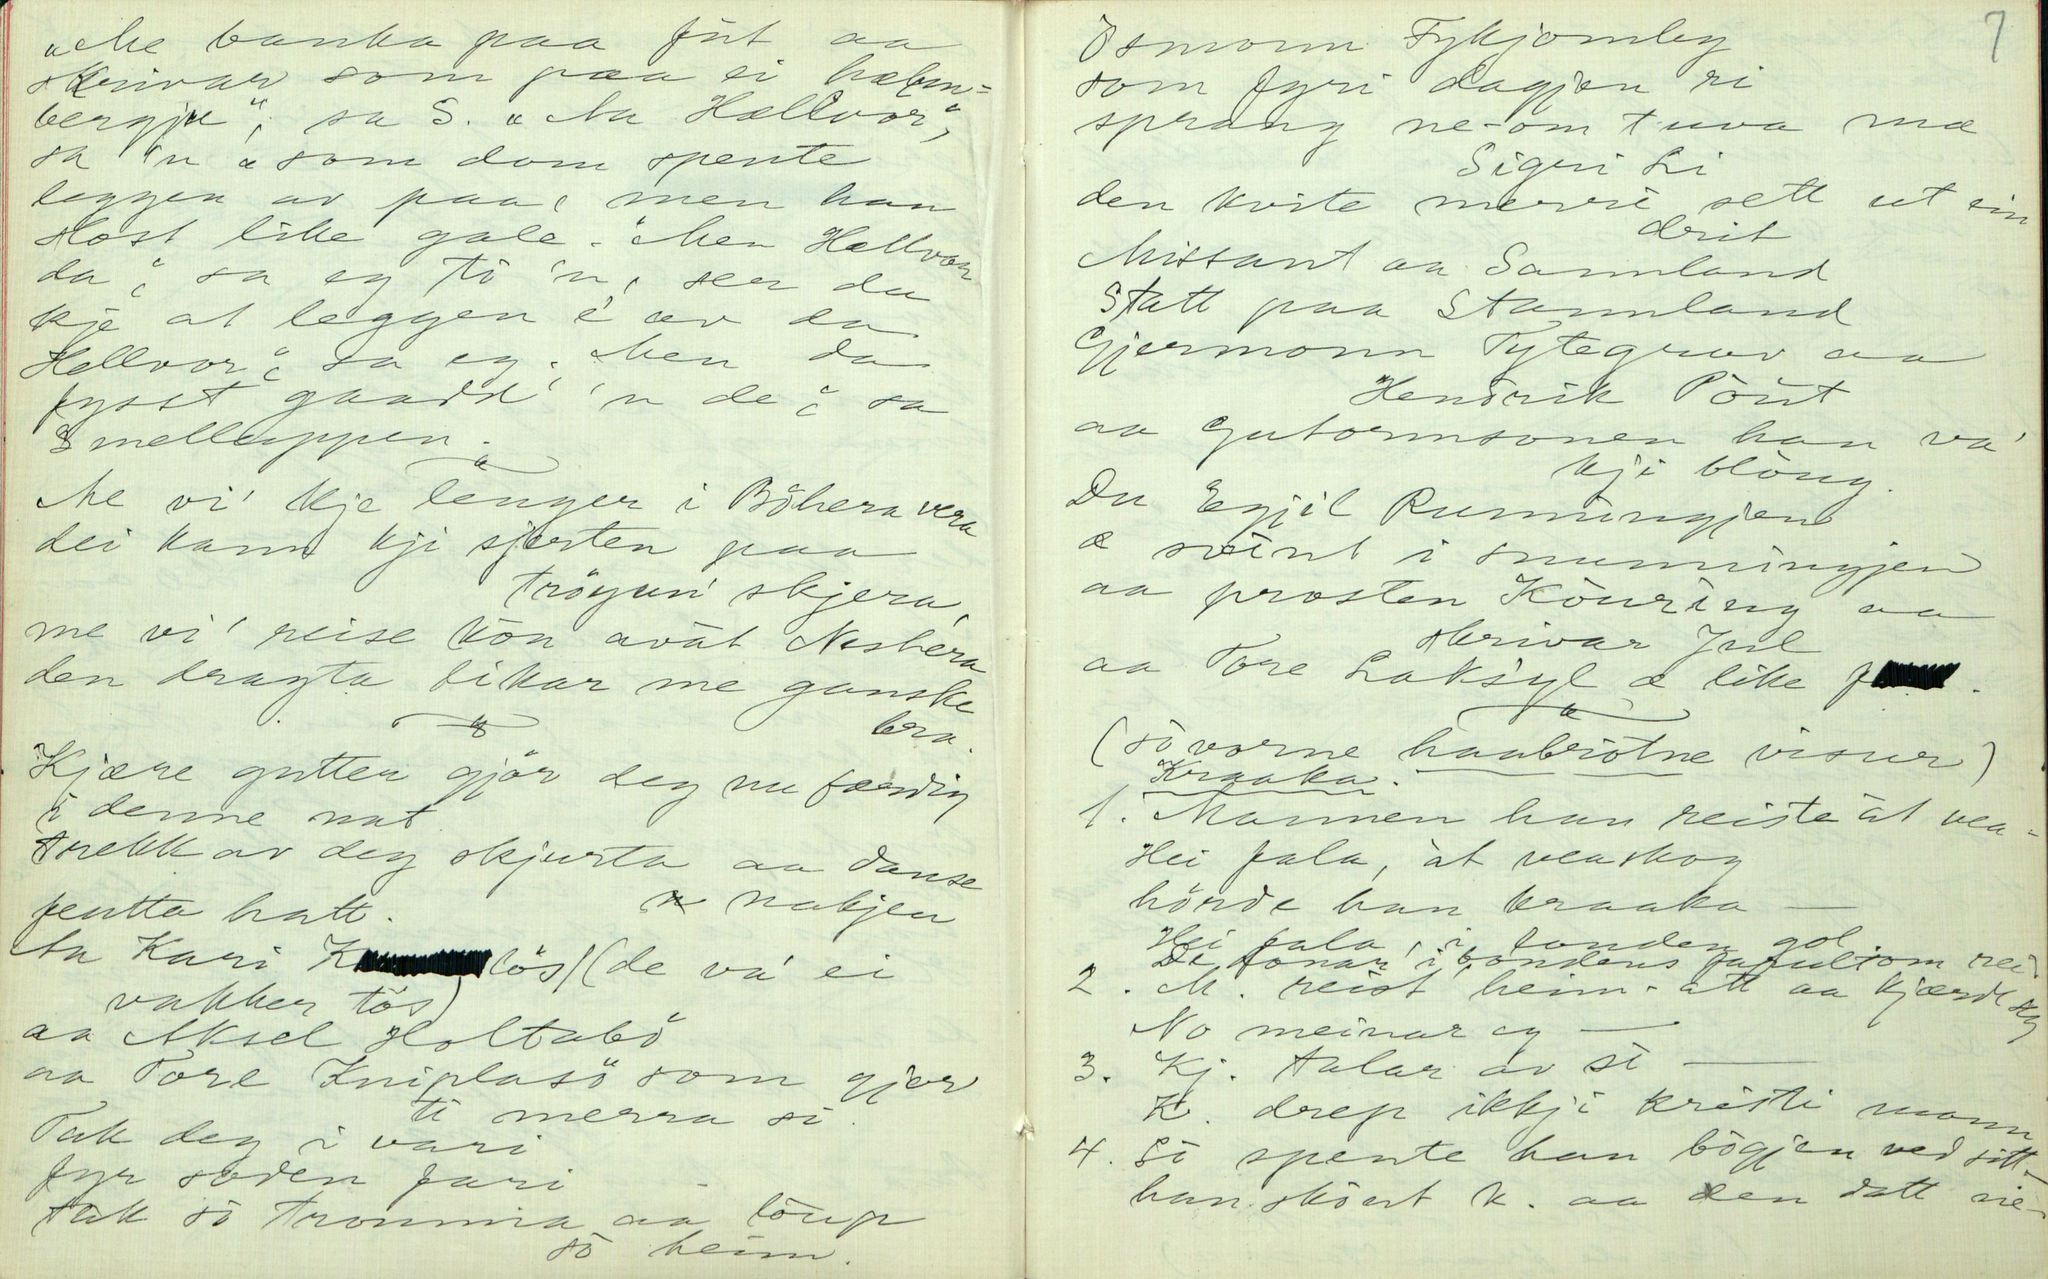 "Me banka paa fut aa
skrivar som paa ei halm=
bergje", sa S. "Aa Hællvor",
sa 'n "som dom spente
leggen av paa, men han
slost like gale. "Men Hællvor
da", sa eg ti 'n, ser du
kje at leggen é av da
Hellvor", sa eg. Men da
fysst gaadd' 'n de", sa
Smelluppen.
Me vi' kje lenger i Böhera vera
dei kann kji sjorten paa
tröyun' skjera,
me vi' reise kön avat Neshera
den dragta likar me ganske
bra.
Kjære gutten gjör deg nu færdig
i denne nat
trekk av deg skjurta aa danse
nakjen
fentta hatt.
Aa Kari K lös (de va' ei
vakker tös)
aa Aksel Holtabö
aa Tore Kniplasö som gjer
ti merra si.
Tak deg i vari
fyr soden fari
tak so tromma aa löup
so heim.
7
Osmonn Fykjomley
som fyri dagjen ri
sprang ne-om tuva mæ
Sigri Li
den kvite merri sett ut ein
drit
Missant aa Sannland
Statt paa Stannland
Gjermonn Tytegrav aa
Hendrik Pöut
aa Gutormsonen han va'
kji blöug.
Du Egjil Runningjen
æ svint i snunningjen
aa prosten Köuring aa
skrivar Jul
aa Tore Laksyl æ like f .
(so vorne haabrotne visur)
Kraaka.
1. Mannen han reiste åt vea-
Hei fala, åt veaskog
hörde han kraaka —
Hei fala, i londen gol.
De fonar' i bondens fafulsom rei
2. M. reist heim-att aa kjærde seg
No meinar eg —
3. Kj. talar av si —
K. drep ikkji kristi mann
4. So spente han bogjen ved sitt-
han sköut k. aa den datt ne-